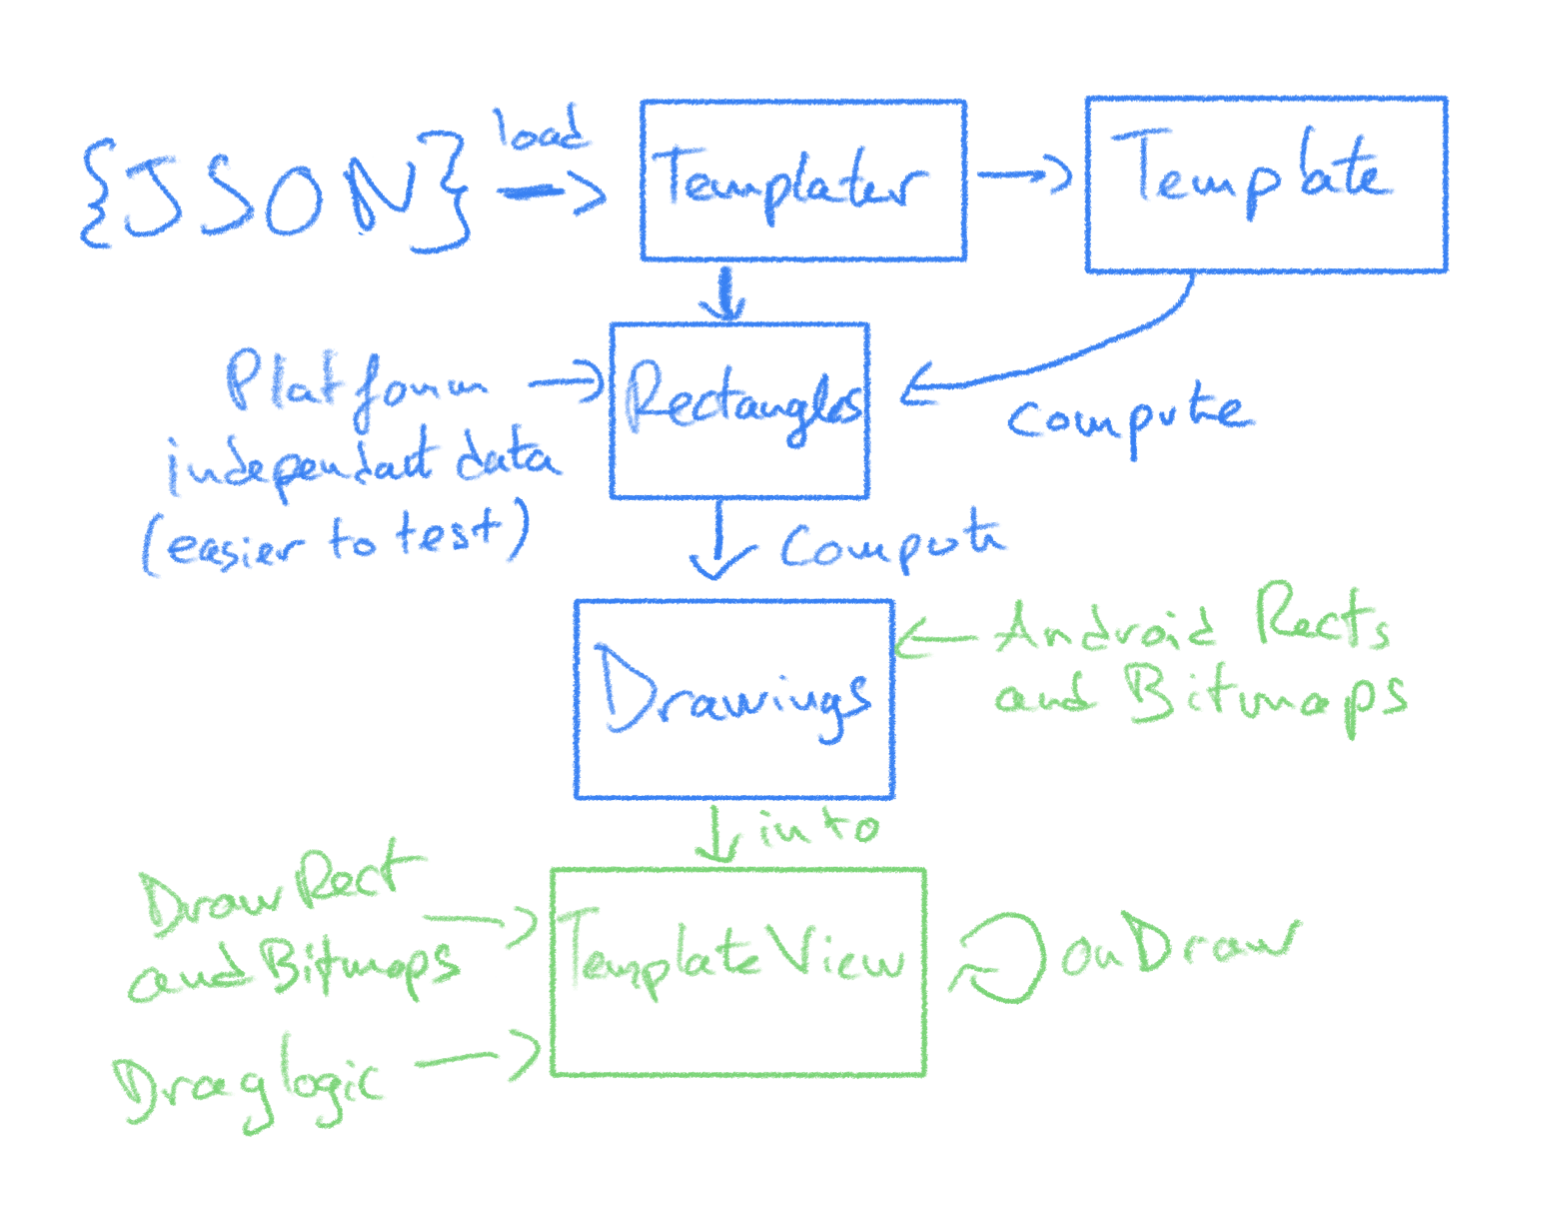 {JSON}
load
Templater
Template
Platform
independant data
(easier to test)
Rectangles
Compute
Compute
Drawings
Android Rects
and Bitmaps
into
Draw Rect
and Bitmaps
Drag logic
TemplateView
onDraw